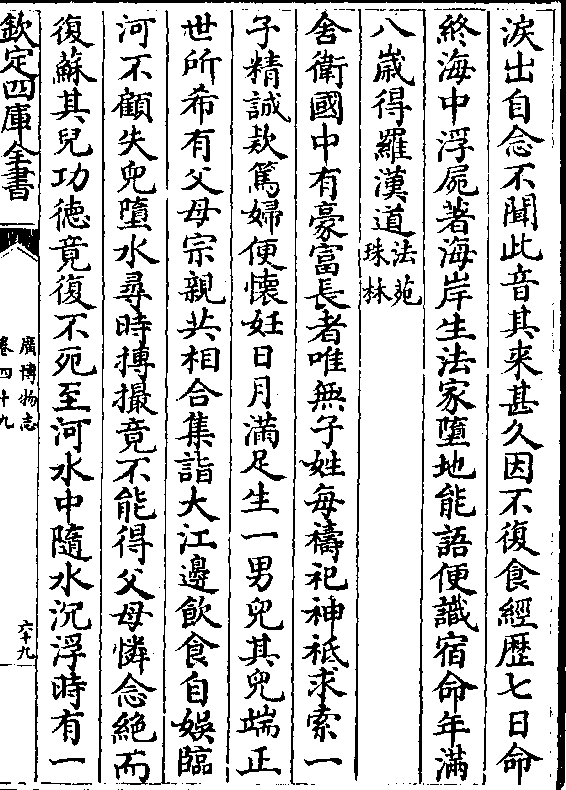 淚出自念不聞此音其来甚久因不復食經歴七日命
終海中浮屍著海岸生法家墮地能語便識宿命年滿
八歳得羅漢道法苑珠林
舍衛國中有豪富長者唯無子姓每禱祀神祗求索一
子精誠欵篤婦便懐妊日月滿足生一男兒其兒端正
世所希有父母宗親共相合集詣大江邊飲食自娱臨
河不顧失兒墮水尋時摶撮竟不能得父母憐念絶而
復蘇其兒功徳竟復不死至河水中隨水沉浮時有一
欽定四庫全書
廣博物志
卷四十九
六十九